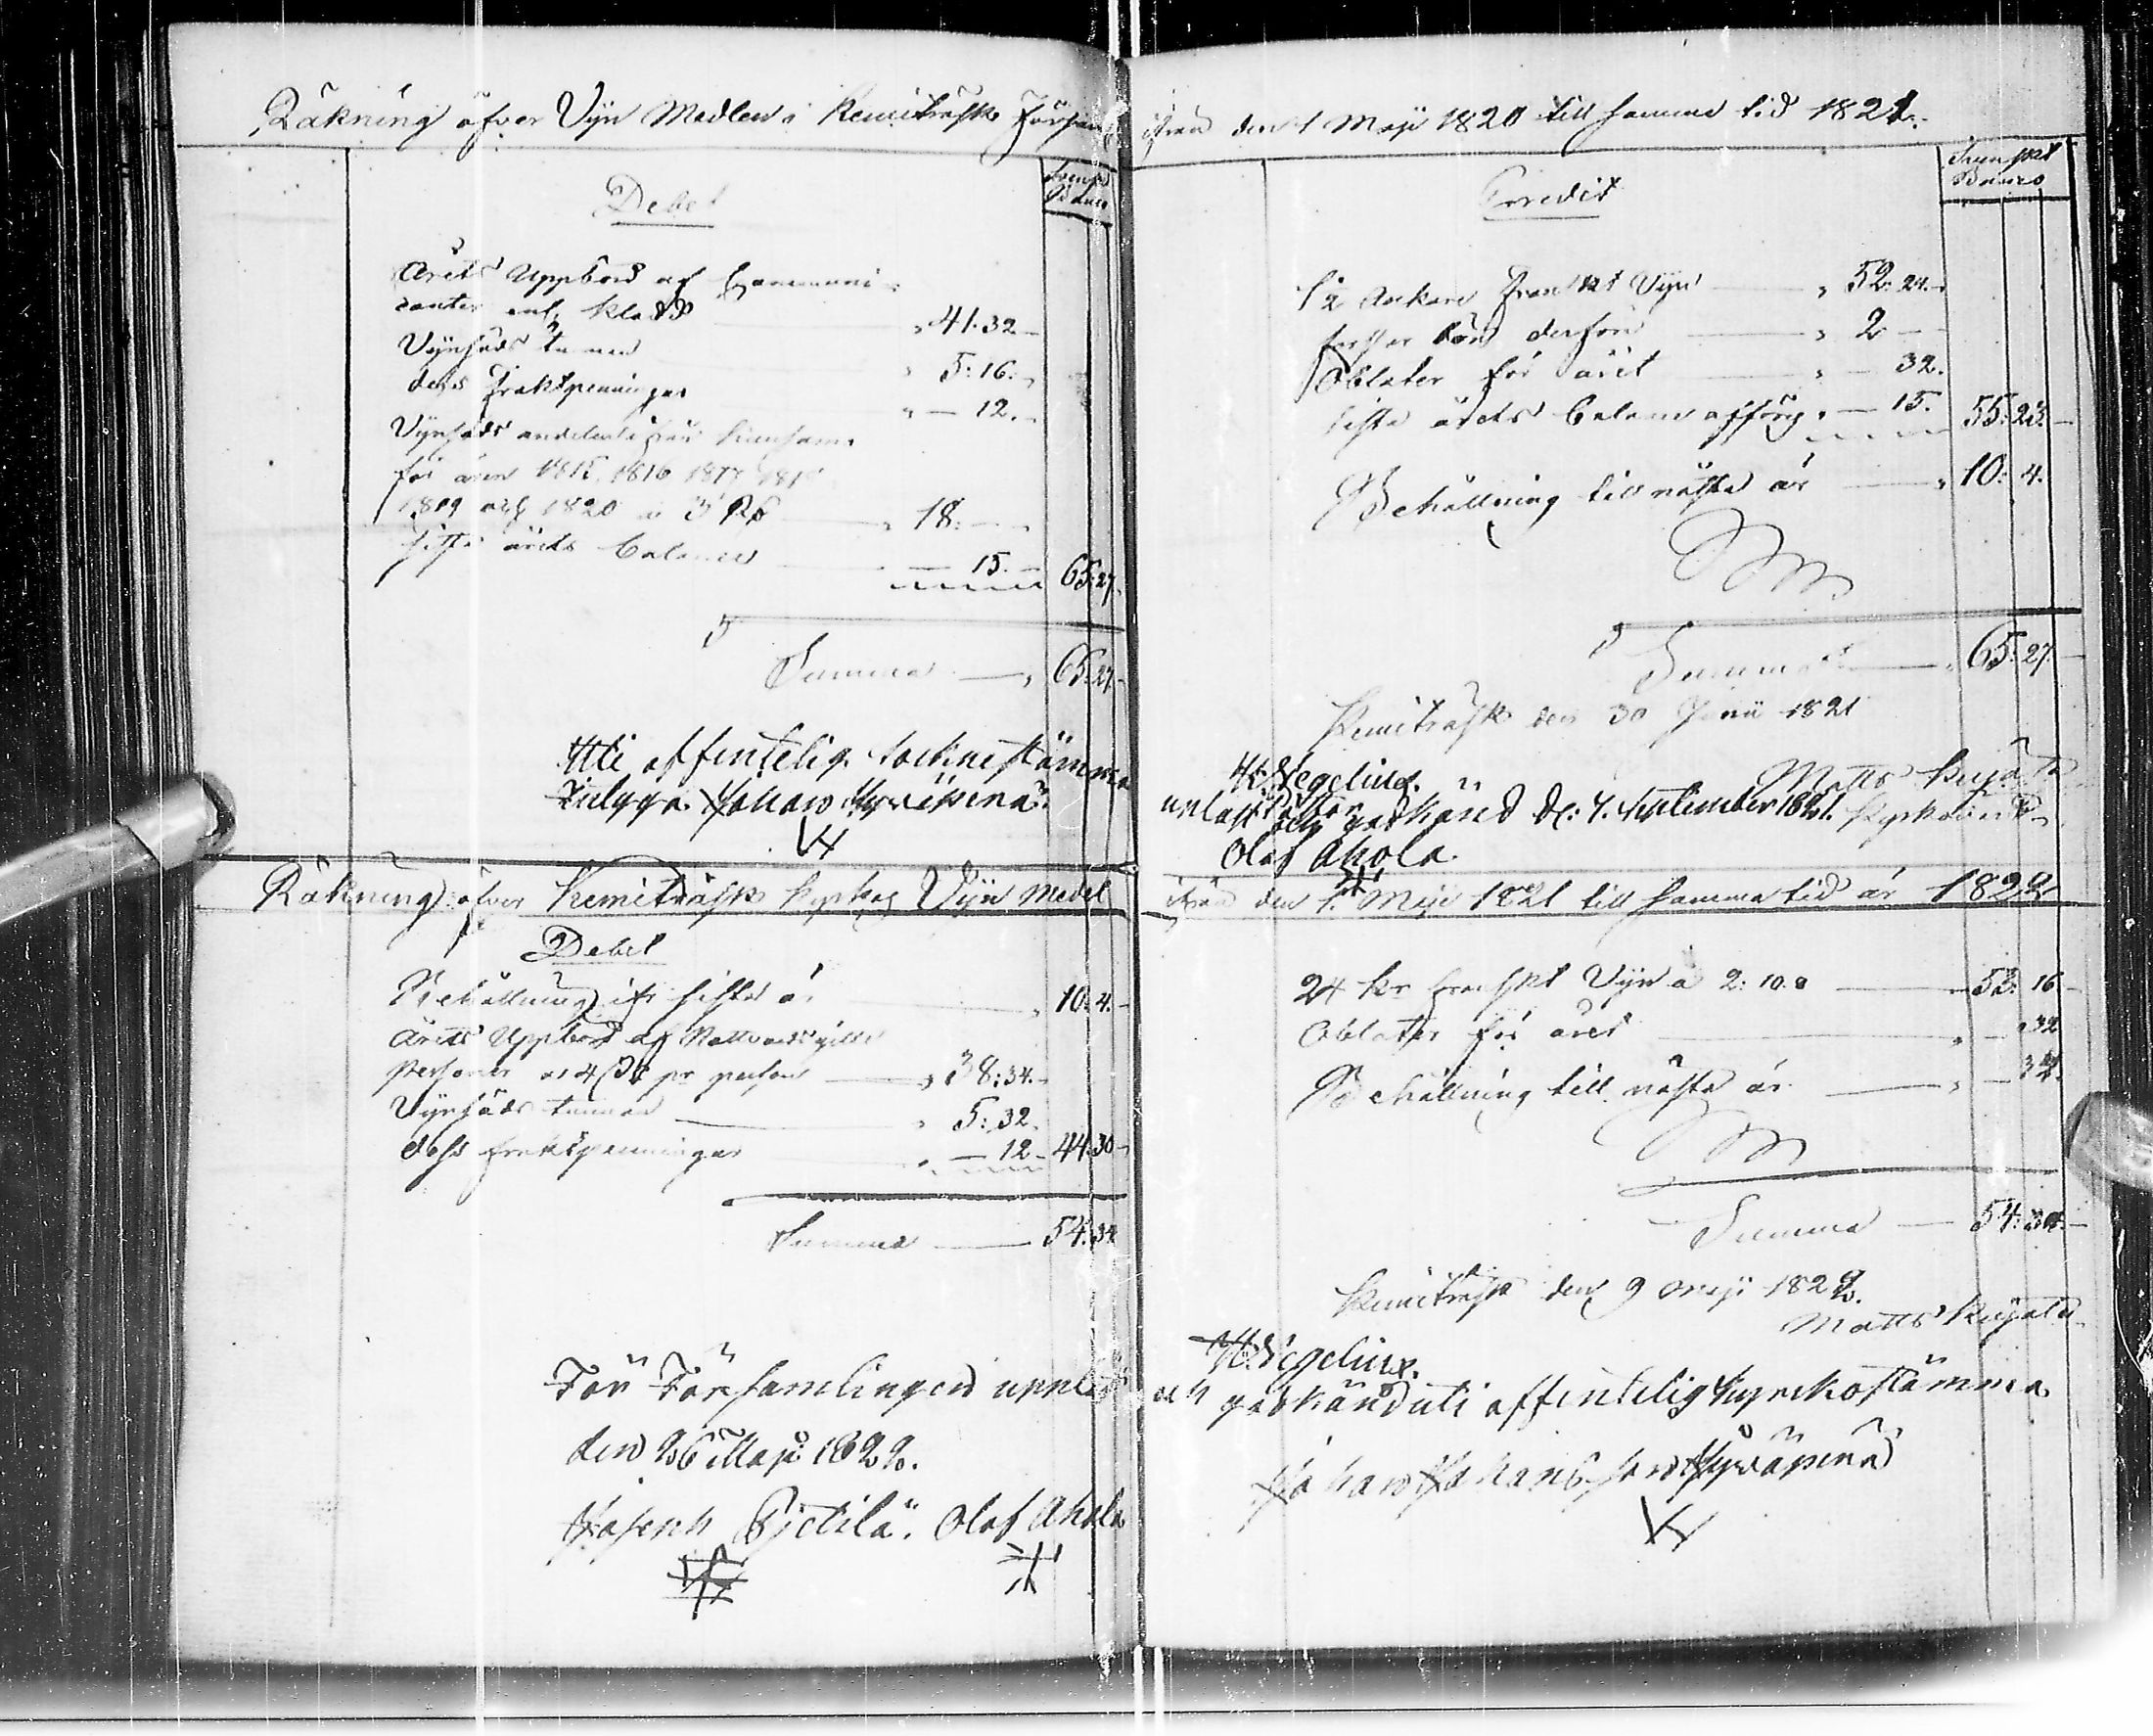 Räkning öfver Vijn Medlen i Kemiträsk Försam
Debet
Svenskt
Banco
Årets Uppbörd af Communi-
canter enl. Kladd " 41.32
Vijnsäds tunnan " 5:16.
dess fraktpenningar " — 12.
Vijnsäds andelen
för åren 1815. 1816 1817
1819 och 1820 a 3 Rd " 18:
sista årets balance — 15. 65:27
Summa — " 65:27
Uti offentelig Sockne stämma
Johan Hyväpenä
Räkning öfver Kemiträsk Kyrkas Vijn Medel
Debet
Behållning ifr. sista år " 10:4.
Årets Uppbörd af Nattvards
personer a 4 pr person " 38:34.
Vijnsäds tunnan " 5:32.
dess fraktpenningar — 12 44:30
Summa 54:34
För Församlingen uppläst
den 26 Maji 1822.
Joseph Pietilä. Olof Ahola
ifrån den 1 Maji 1820 till samma tid 1821.
Credit
Svenskt
Banco
Ankare Franskt Vijn " 52:24.
derför " 2 —
Oblater för året " — 32.
sista årets balance " — 15. 55:23.
Behållning till nästa år " 10: 4.
Summa " 65:27.
Kemiträsk den 30 Junii 1821
H. Wegelius. Matts Kujala
Pastor Kyrkovärd
upläst och godkänd d: 4. September 1821.
Olof Ahola.
ifrån den 1. Maji 1821 till samma tid år 1822
24 Kr franskt Vijn a 2:10.8 52: 16
Oblater för året " — 32
Behållning till nästa år " — 34.
Summa — 54:34.
Kemiträsk den 9 Maji 1822.
Matts Kujala
H. Wegelius.
och godkänd uti offentelig Kyrckostämma
Johan Johansson Hyväpenä